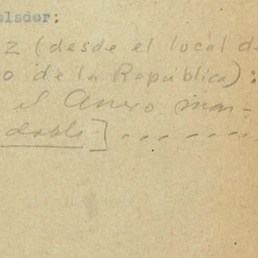 elador:
z (desde el local d
o de la República):
el Anexo man-
doble]